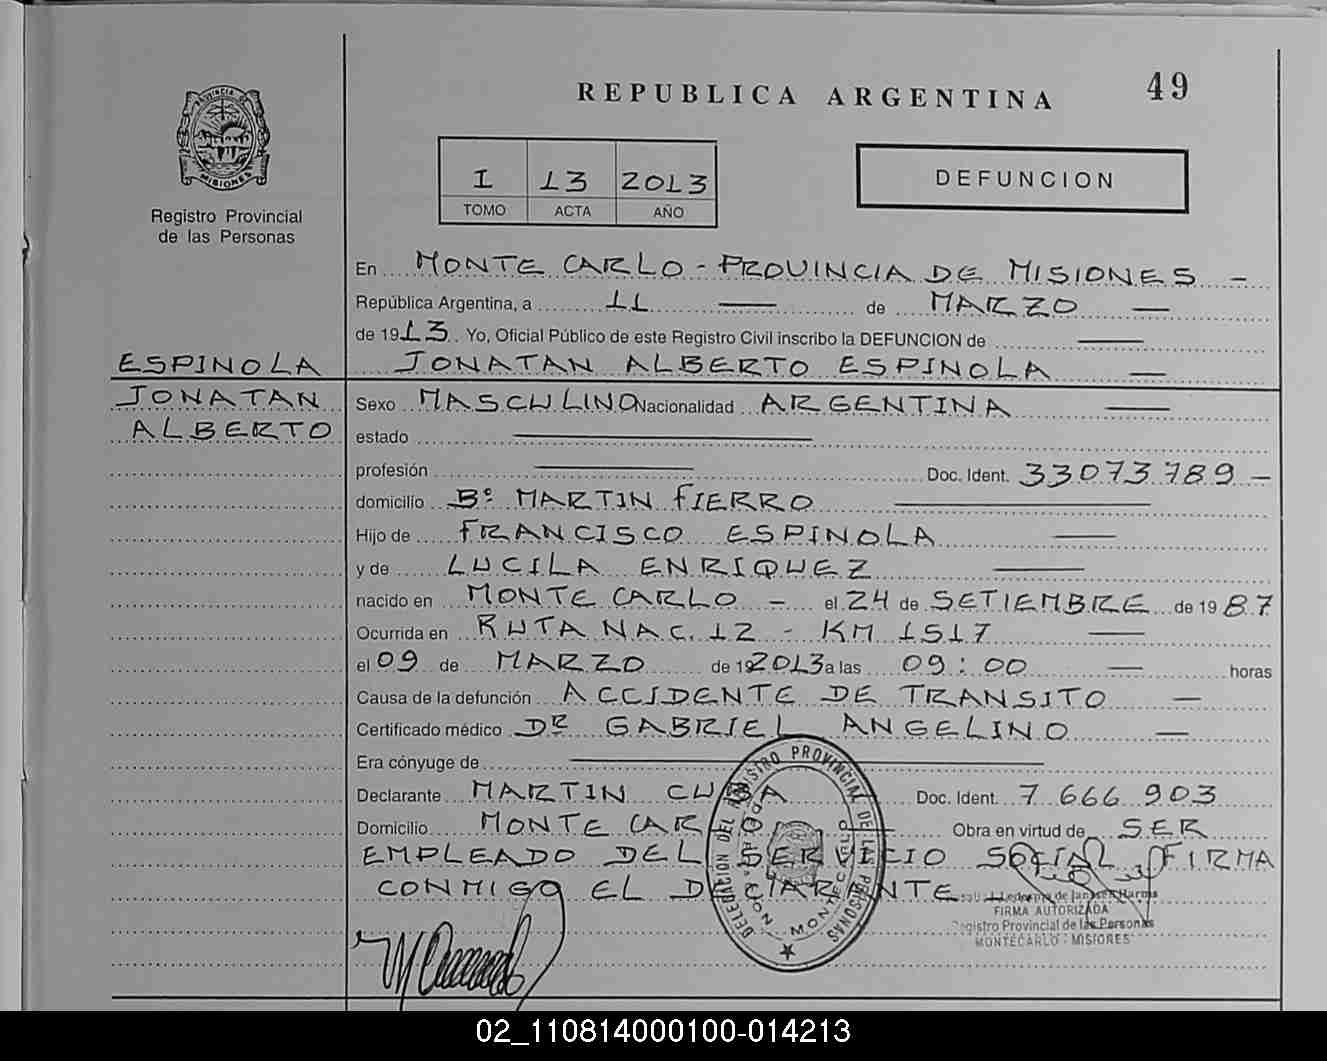 49
REPUBLICA ARGENTINA
PROVINCIA DE
MISIONES
Registro Provincial
de las Personas
I 13 2013
TOMO ACTA AÑO
DEFUNCION
En MONTE CARLO - PROVINCIA DE MISIONES -
República Argentina, a 11 — de MARZO —
de 1913. Yo, Oficial Público de este Registro Civil inscribo la DEFUNCION de —
ESPINOLA JONATAN ALBERTO ESPINOLA —
JONATAN Sexo MASCULINO Nacionalidad ARGENTINA —
ALBERTO estado —
profesión — Doc. Ident. 33073789 -
domicilio Bº MARTIN FIERRO —
Hijo de FRANCISCO ESPINOLA —
y de LUCILA ENRIQUEZ —
nacido en MONTE CARLO - el 24 de SETIEMBRE de 1987
Ocurrida en RUTA NAC. 12 - KM 1517 —
el 09 de MARZO de 192013 a las 09:00 — horas
Causa de la defunción ACCIDENTE DE TRANSITO —
Certificado médico DR GABRIEL ANGELINO —
Era cónyuge de —
Declarante MARTIN Doc. Ident. 7 666 903
Domicilio MONTE CARLO — Obra en virtud de SER
EMPLEADO DEL SERVICIO SOCIAL, FIRMA
CONMIGO EL DECLARANTE —
DELEGACION DEL REGISTRO PROVINCIAL DE LAS PERSONAS
MONTECARLO
Ledesma de Janssen Harms
FIRMA AUTORIZADA
Registro Provincial de las Personas
MONTECARLO - MISIONES
02_110814000100-014213